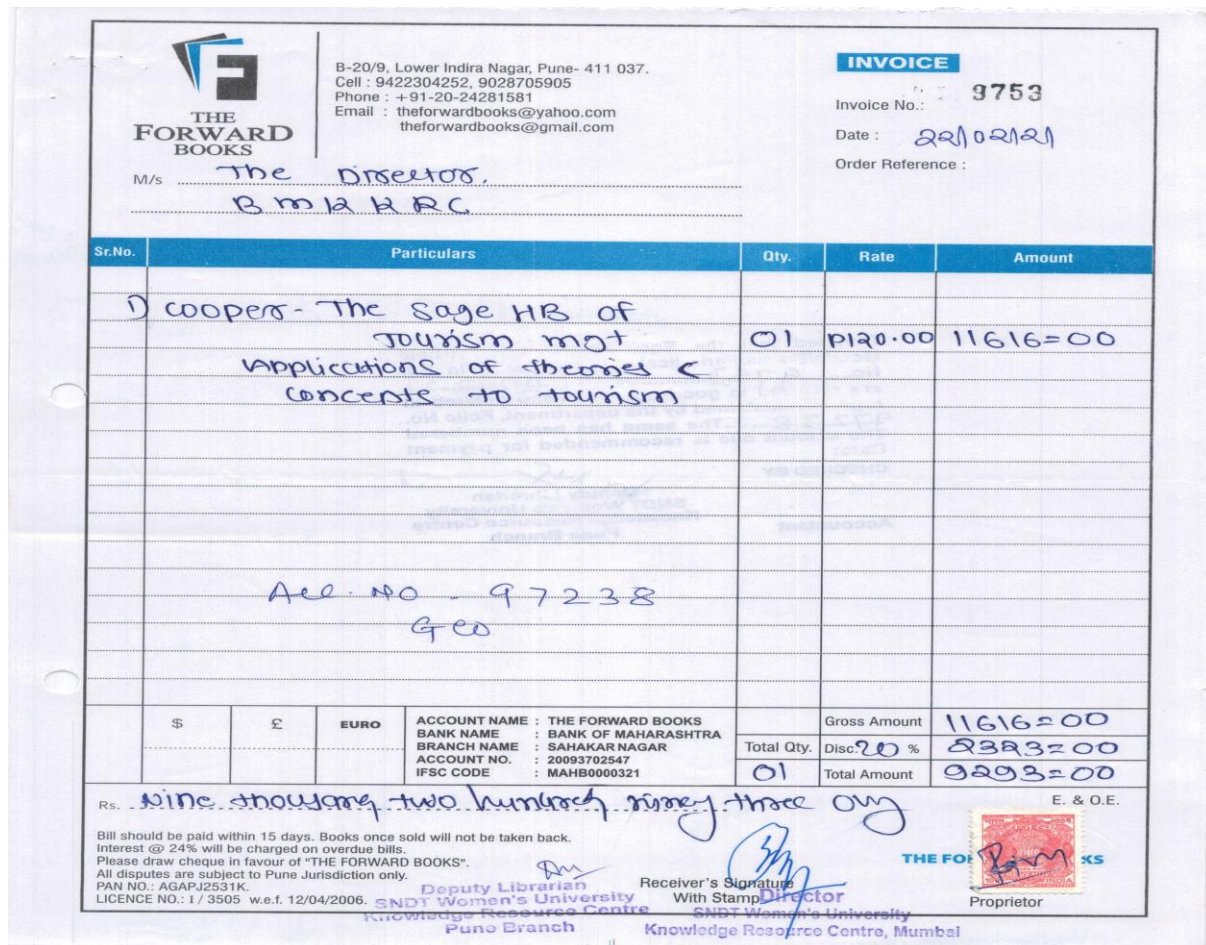 THE
FORWARD
BOOKS
B-20/9, Lower Indira Nagar, Pune- 411 037.
Cell : 9422304252, 9028705905
Phone : +91-20-24281581
Email : theforwardbooks@yahoo.com
theforwardbooks@gmail.com
INVOICE
Invoice No.: 9753
Date : 22/02/21
Order Reference :
M/s The Director.
BMKKRC
Sr.No. Particulars Qty. Rate Amount
1) Cooper - The Sage HB of
Tourism mgt 01 P120.00 11616=00
Applications of theories &
concepts to tourism
Acc. No - 97238
Geo
$ £ EURO
ACCOUNT NAME : THE FORWARD BOOKS
BANK NAME : BANK OF MAHARASHTRA
BRANCH NAME : SAHAKAR NAGAR
ACCOUNT NO. : 20093702547
IFSC CODE : MAHB0000321
Gross Amount 11616=00
Total Qty. Disc. 20 % 2323=00
01 Total Amount 9293=00
Rs. Nine thousand two hundred ninety three only
E. & O.E.
Bill should be paid within 15 days. Books once sold will not be taken back.
Interest @ 24% will be charged on overdue bills.
Please draw cheque in favour of "THE FORWARD BOOKS".
All disputes are subject to Pune Jurisdiction only.
PAN NO.: AGAPJ2531K.
LICENCE NO.: I / 3505 w.e.f. 12/04/2006.
Deputy Librarian
SNDT Women's University
Knowledge Resource Centre
Pune Branch
Receiver's Signature
With Stamp
Director
SNDT Women's University
Knowledge Resource Centre, Mumbai
THE FO KS
Proprietor